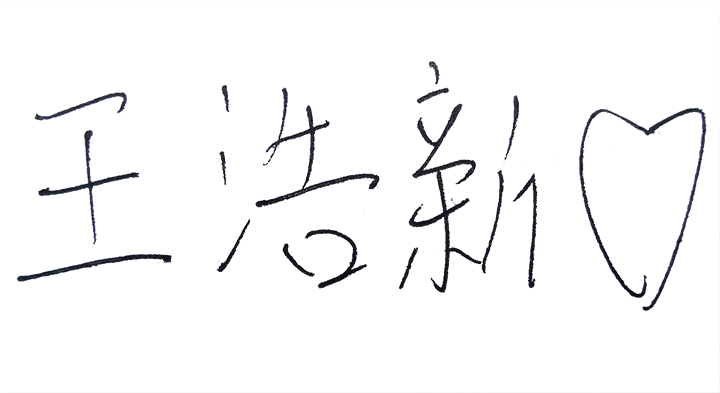 王浩新♡